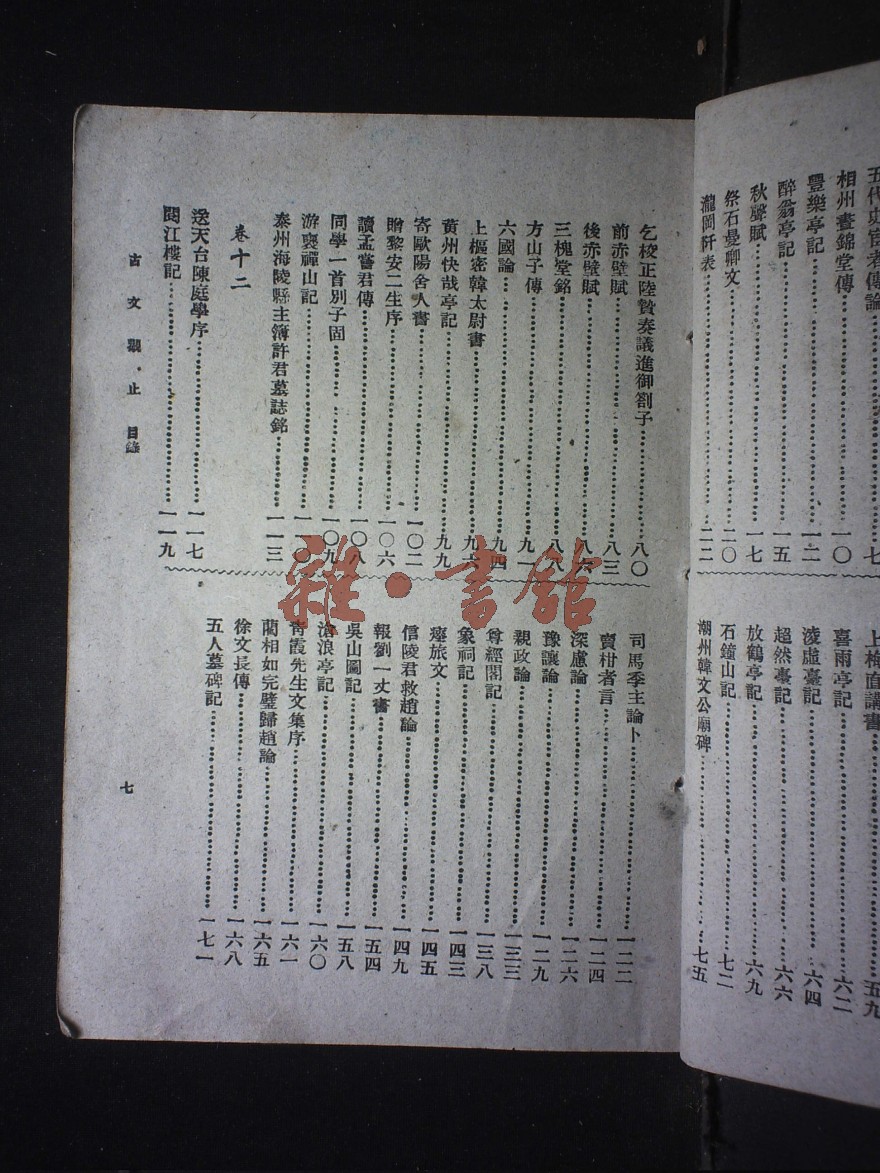 五代史宦者傳論……七
相州晝錦堂傳……一〇
豐樂亭記……一二
醉翁亭記……一五
秋聲賦……一七
祭石曼卿文……二〇
瀧岡阡表……二二
上梅直講書……五九
喜雨亭記……六二
淩虛臺記……六四
超然臺記……六六
放鶴亭記……六九
石鐘山記……七二
潮州韓文公廟碑……七五
乞校正陸贄奏議進御劄子……八〇
前赤壁賦……八三
後赤壁賦……八六
三槐堂銘……八八
方山子傳……九一
六國論……九四
上樞密韓太尉書……九六
黃州快哉亭記……九九
寄歐陽舍人書……一〇二
贈黎安二生序……一〇六
讀孟嘗君傳……一〇八
同學一首別子固……一〇九
游褒禪山記……一一〇
泰州海陵縣主簿許君墓誌銘……一一三
卷十二
送天台陳庭學序……一一七
閱江樓記……一一九
司馬季主論卜……一二二
賣柑者言……一二四
深慮論……一二六
豫讓論……一二九
親政論……一三三
尊經閣記……一三八
象祠記……一四三
瘞旅文……一四五
信陵君救趙論……一四九
報劉一丈書……一五四
吳山圖記……一五八
滄浪亭記……一六〇
青霞先生文集序……一六一
藺相如完璧歸趙論……一六五
徐文長傳……一六八
五人墓碑記……一七一
古文觀止 目錄
七
雜·書館